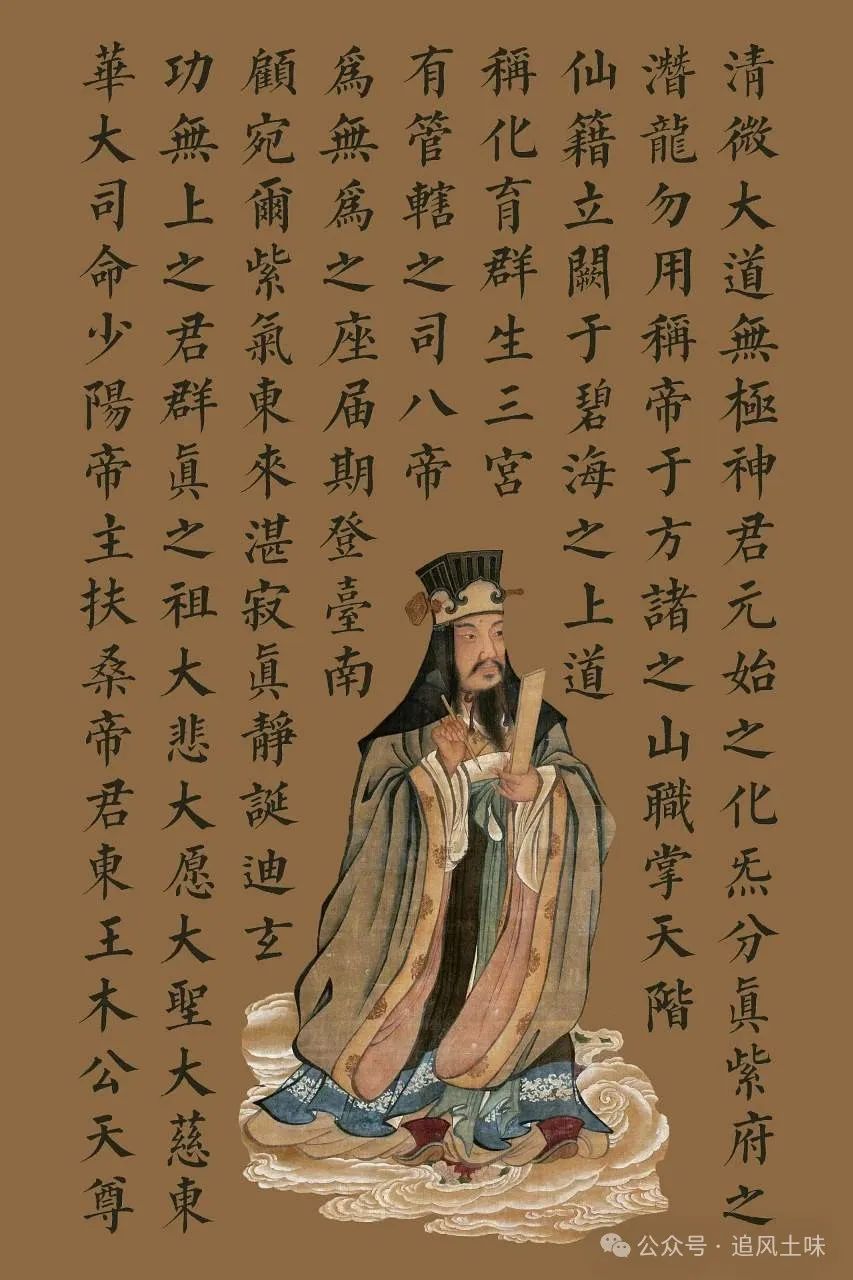 清微大道無極神君元始之化炁分眞紫府之
潛龍勿用稱帝于方諸之山職掌天階
仙籍立闕于碧海之上道
稱化育群生三宮
有管轄之司八帝
爲無爲之座届期登臺南
顧宛爾紫氣東來湛寂眞靜誕迪玄
功無上之君群眞之祖大悲大愿大聖大慈東
華大司命少陽帝主扶桑帝君東王木公天尊
公众号·追风土味